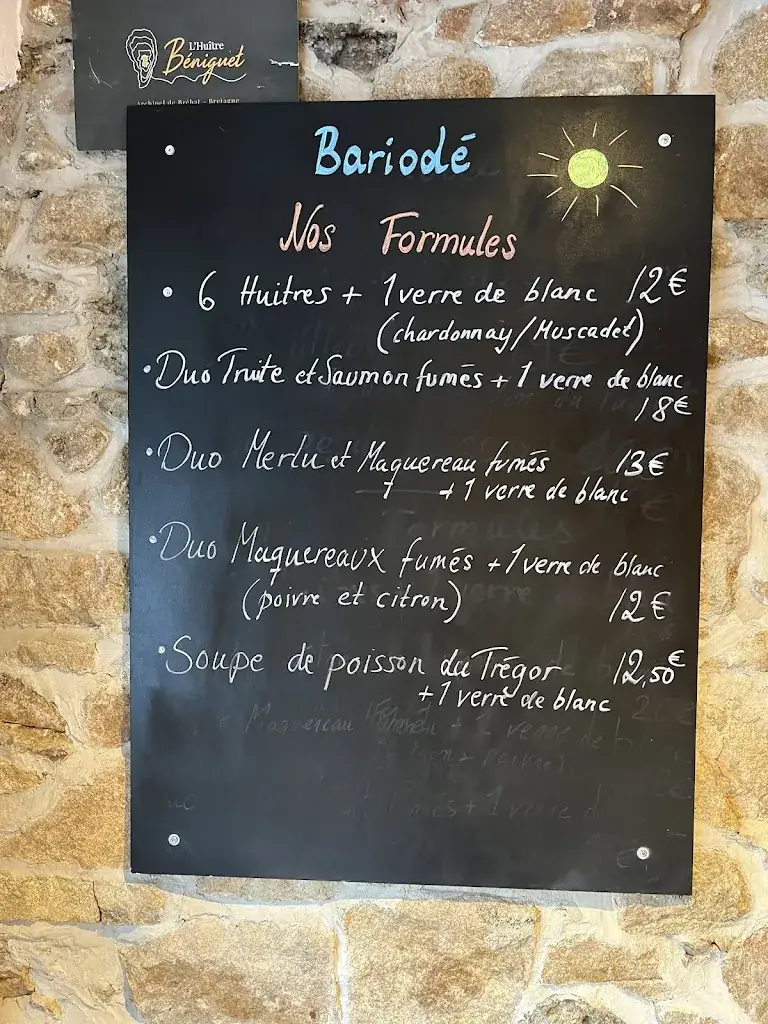 L'Huître
Béniguet
Archipel de Bréhat - Bretagne
Bariodé
Nos Formules
• 6 Huitres + 1 verre de blanc 12€
(chardonnay/Muscadet)
• Duo Truite et Saumon fumés + 1 verre de blanc
18€
• Duo Merlu et Maquereau fumés 13€
+ 1 verre de blanc
• Duo Maquereaux fumés + 1 verre de blanc
(poivre et citron) 12€
• Soupe de poisson du Trégor 12,50€
+ 1 verre de blanc